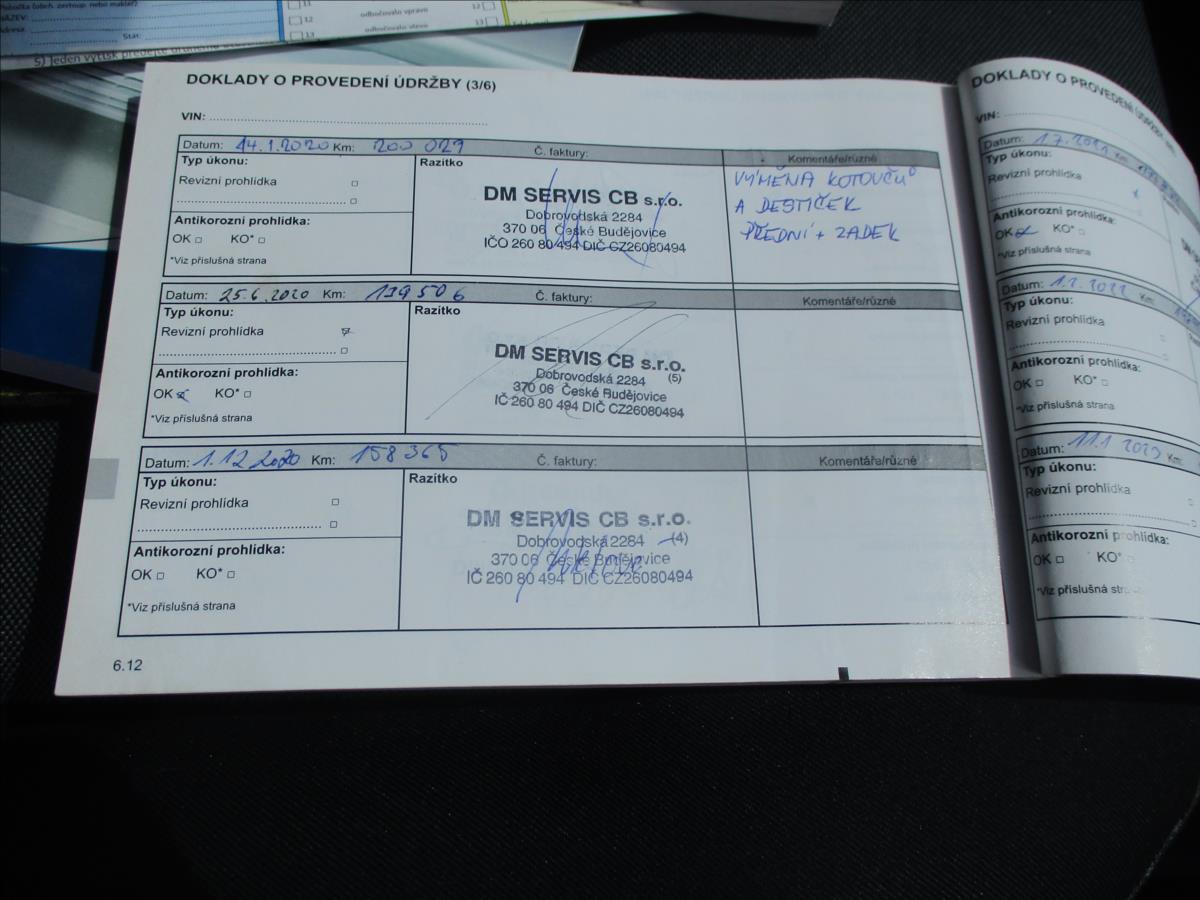 11
12
odbočovalo vpravo
12
NÁZEV:
Adresa
Stát:
12
odbočovalo vlevo
13
13
5) Jeden výtisk předejte druhému
DOKLADY O PROVEDENÍ ÚDRŽBY (3/6)
VIN:
Datum: 14.1.2020 Km: 200 029 Č. faktury: Komentáře/různé
Typ úkonu:
Revizní prohlídka
Antikorozní prohlídka:
OK KO*
*Viz příslušná strana
Razítko
DM SERVIS CB s.r.o.
Dobrovodská 2284
370 06 České Budějovice
IČO 260 80 494 DIČ CZ26080494
VÝMĚNA KOTOUČŮ
A DESTIČEK
PŘEDNÍ + ZADEK
Datum: 25.6.2020 Km: 119506 Č. faktury: Komentáře/různé
Typ úkonu:
Revizní prohlídka
Antikorozní prohlídka:
OK KO*
*Viz příslušná strana
Razítko
DM SERVIS CB s.r.o.
Dobrovodská 2284 (5)
370 06 České Budějovice
IČ 260 80 494 DIČ CZ26080494
Datum: 1.12.2020 Km: 158365 Č. faktury: Komentáře/různé
Typ úkonu:
Revizní prohlídka
Antikorozní prohlídka:
OK KO*
*Viz příslušná strana
Razítko
DM SERVIS CB s.r.o.
Dobrovodská 2284 (4)
370 06 České Budějovice
IČ 260 80 494 DIČ CZ26080494
6.12
DOKLADY O PROVEDENÍ ÚDRŽBY
VIN:
Datum: Km:
Typ úkonu:
Revizní prohlídka
Antikorozní prohlídka:
OK KO*
*Viz příslušná strana
Datum: 1.2.2022 Km:
Typ úkonu:
Revizní prohlídka
Antikorozní prohlídka:
OK KO*
*Viz příslušná strana
Datum: 11.1 2023 Km:
Typ úkonu:
Revizní prohlídka
Antikorozní prohlídka:
OK KO*
*Viz příslušná